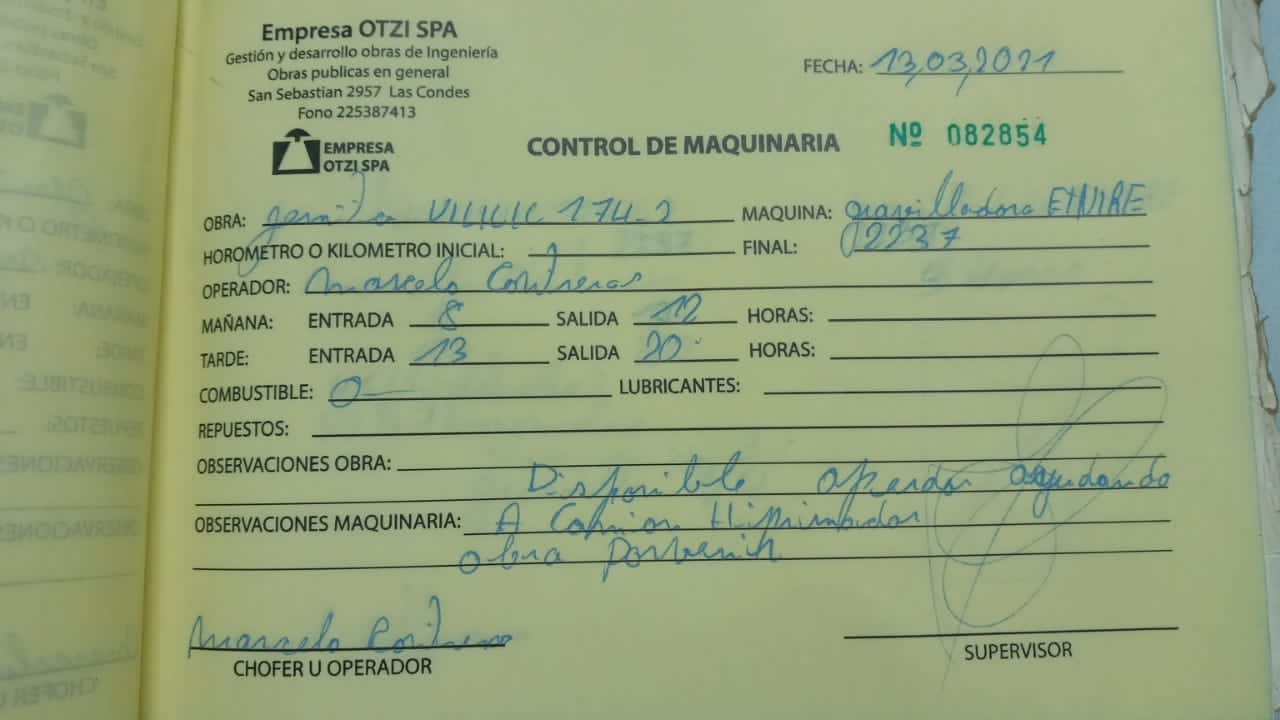 Empresa OTZI SPA
Gestión y desarrollo obras de Ingeniería
Obras publicas en general
San Sebastian 2957 Las Condes
Fono 225387413
FECHA: 13,03,2021
EMPRESA
OTZI SPA
CONTROL DE MAQUINARIA
Nº 082854
OBRA: 174-2 MAQUINA: gravilladora ETNIRE
HOROMETRO O KILOMETRO INICIAL: FINAL: 2237
OPERADOR: Marcelo Contreras
MAÑANA: ENTRADA 8 SALIDA 12 HORAS:
TARDE: ENTRADA 13 SALIDA 20 HORAS:
COMBUSTIBLE: 0 LUBRICANTES:
REPUESTOS:
OBSERVACIONES OBRA:
Disponible operador ayudando
OBSERVACIONES MAQUINARIA: A Camion
obra Porvenir
Marcelo Contreras
CHOFER U OPERADOR
SUPERVISOR